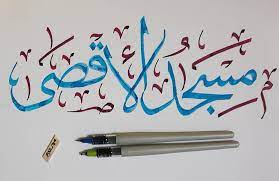 مسجد الأقصى